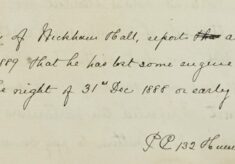 of Wickham Hall, report a
1889 That he has lost some engine
night of 31st Dec 1888 or early
PC 132